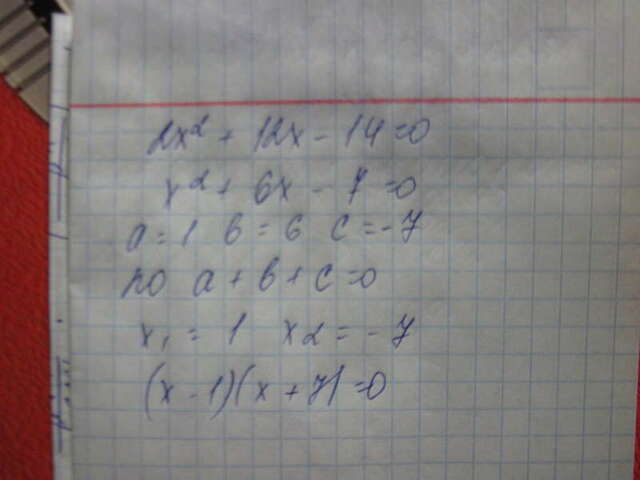 2x² + 12x - 14 = 0
x² + 6x - 7 = 0
a = 1 в = 6 c = -7
по a + в + c = 0
x₁ = 1 x₂ = -7
(x - 1)(x + 7) = 0